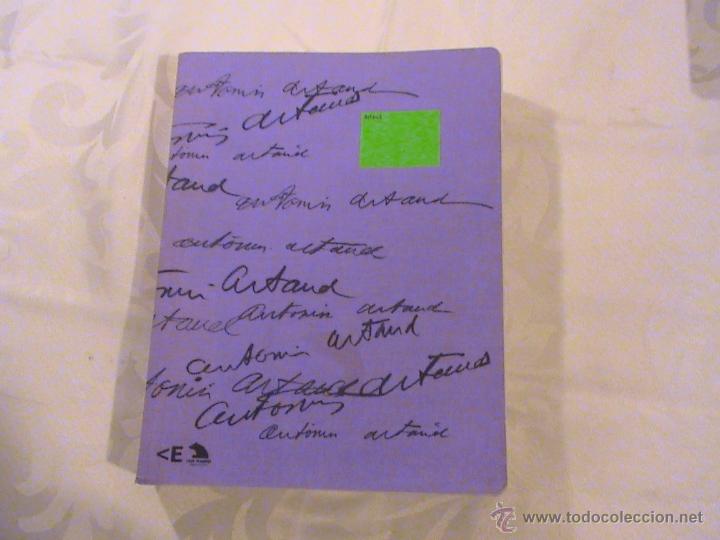 antonin artaud
onin artaud
Artaud
ntonin artaud
taud
antonin artaud
antonin artaud
onin Artaud
rtaud Antonin artaud
artaud
antonin
tonin artaud artaud
antonin
antonin artaud
<E
www.todocoleccion.net